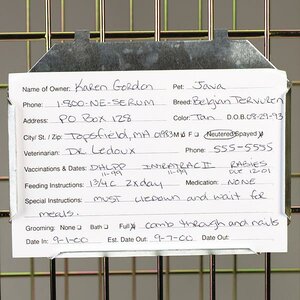 Name of Owner: Karen Gordon Pet: Java
Phone: 1-800-NE-SERUM Breed: Belgian Tervuren
Address: PO Box 128 Color: Tan D.O.B. 08-21-93
City/St./Zip Topsfield, MA 01983 M F Neutered/Spayed
Veterinarian: DR Ledoux Phone: 555-5555
Vaccinations & Dates: DHLPP INTRATRAC II RABIES
11-99 11-99 DUE 12/01
Feeding Instructions: 1 3/4 C 2x day Medication: NONE
Special Instructions: MUST lie down and wait for
meals.
Grooming: None Bath Full comb through and nails
Date In: 9-1-00 Est. Date Out: 9-7-00 Date Out: